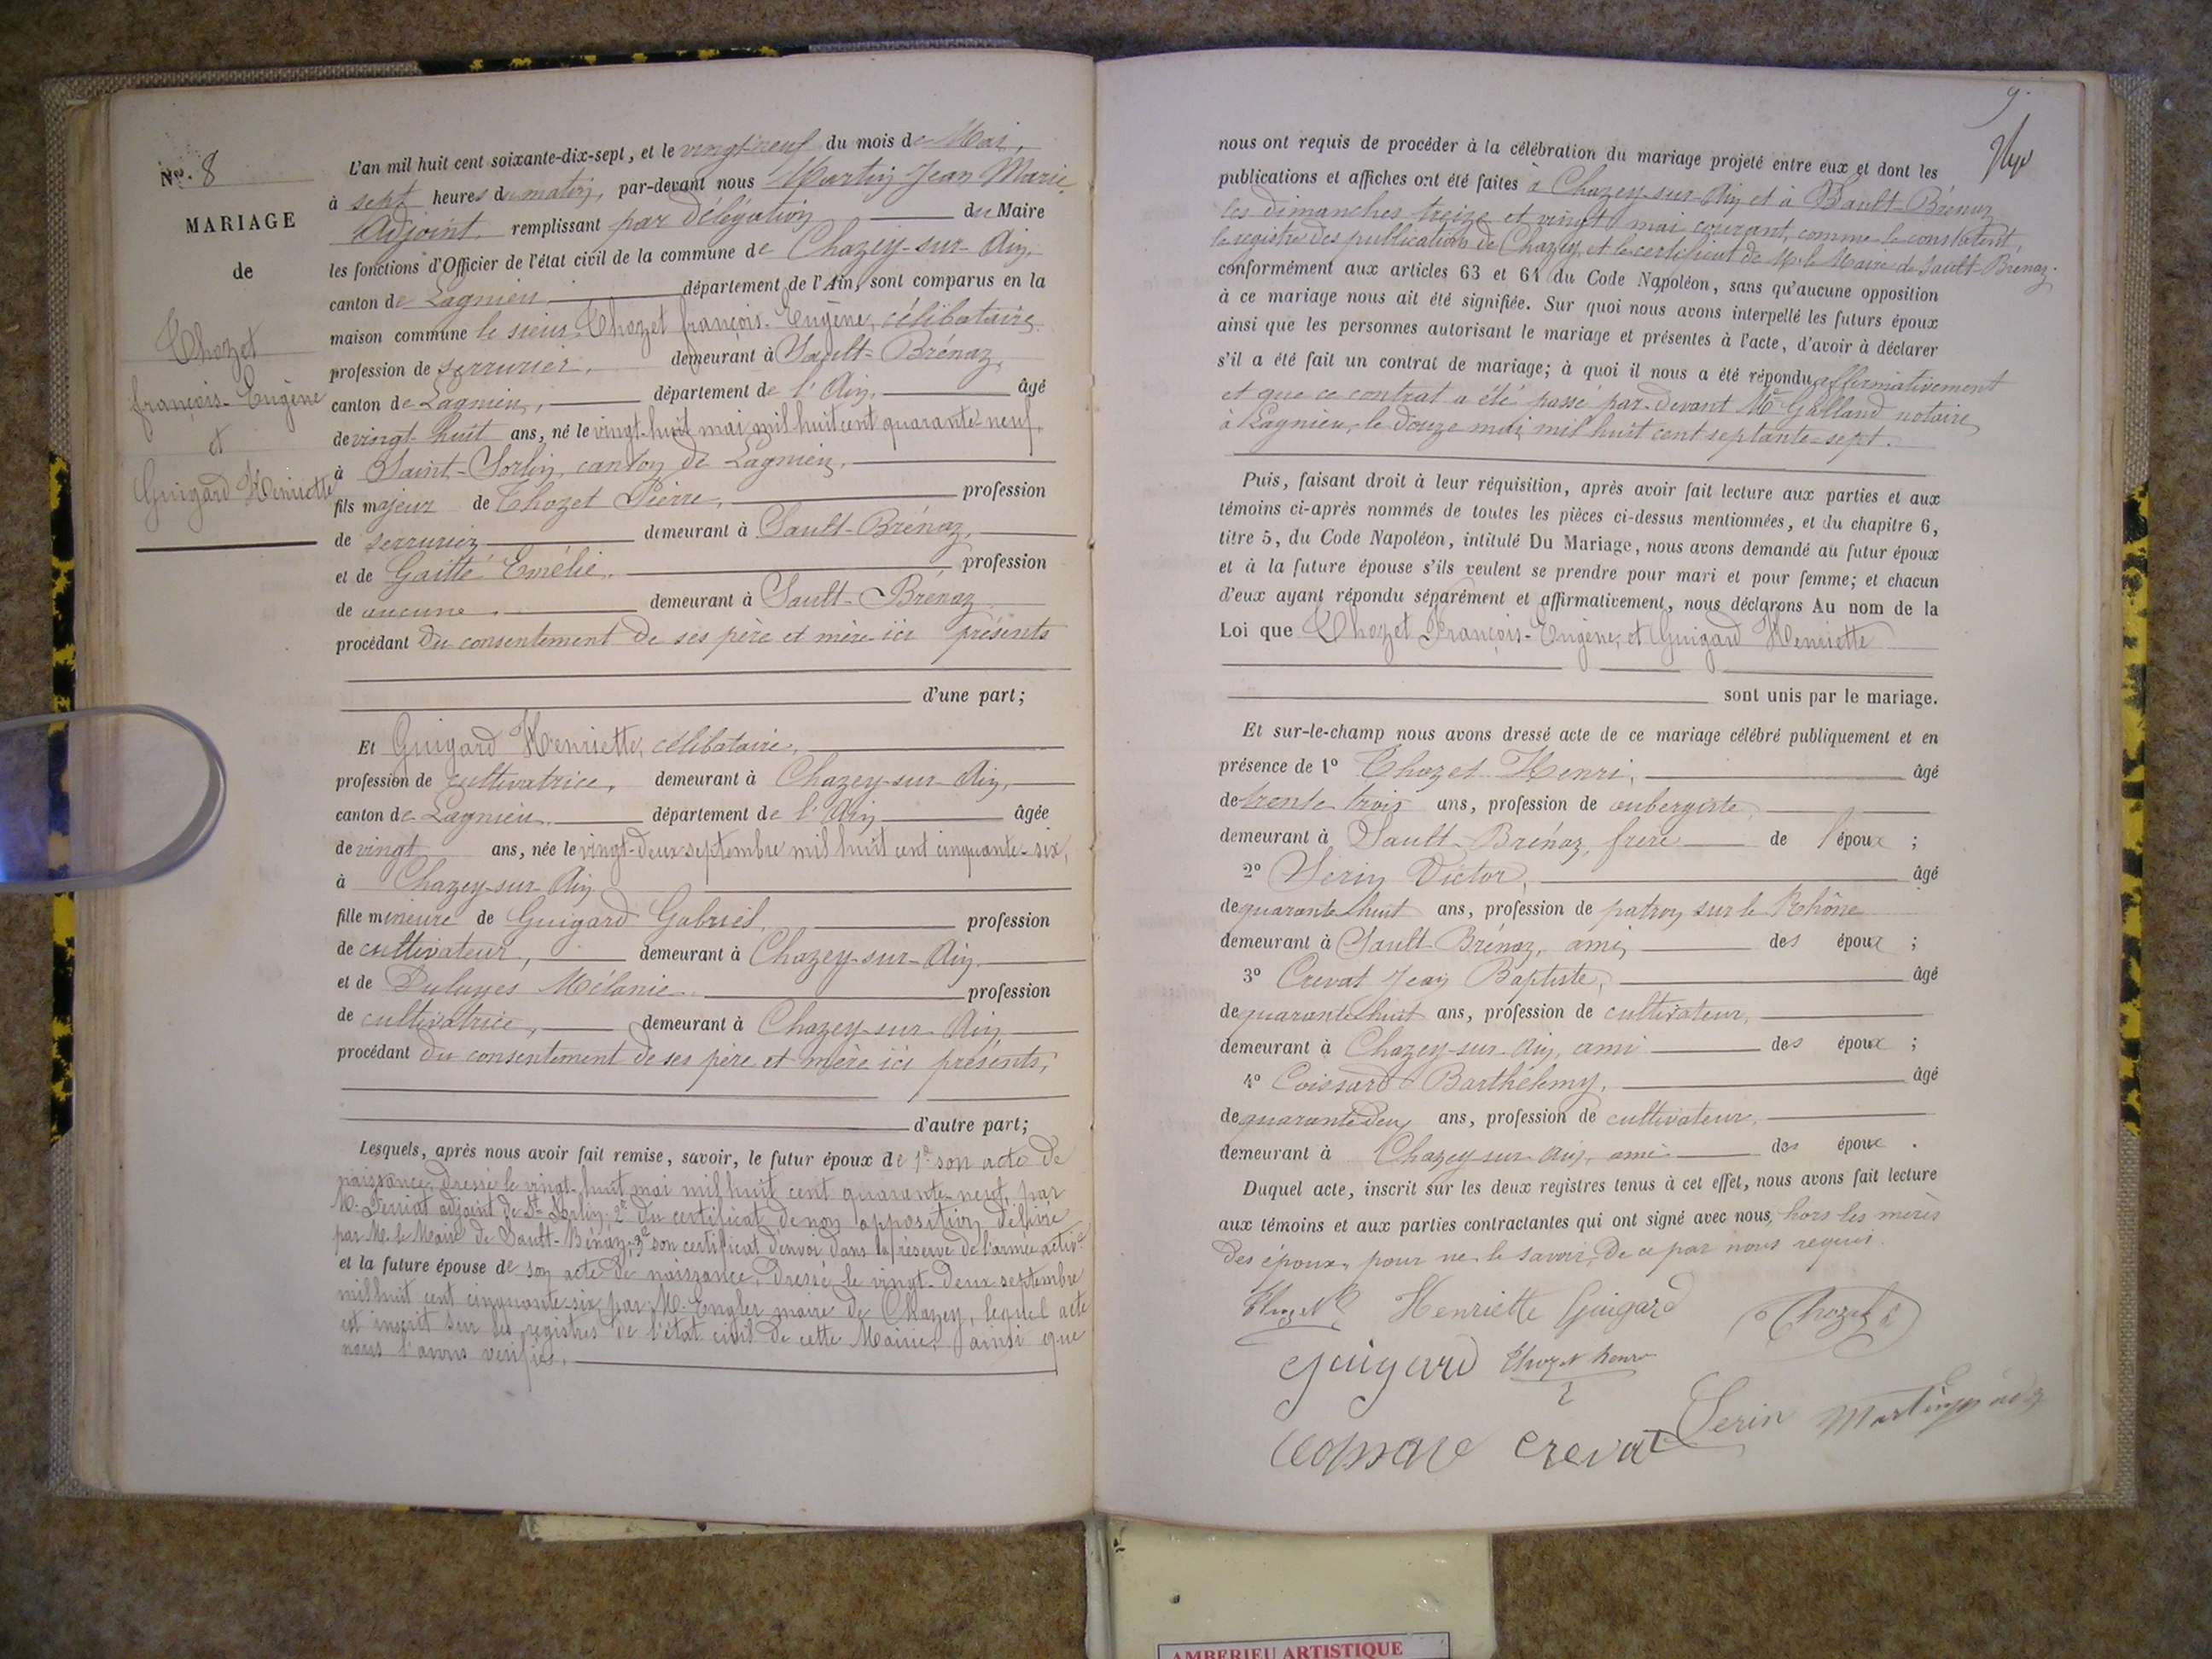 No. 8
MARIAGE
de
Thozet
françois-Eugène
et
Guigard Henriette
L'an mil huit cent soixante-dix-sept, et le vingt-neuf du mois de Mai,
à sept heures du matin, par-devant nous Martin Jean Marie,
Adjoint, remplissant par délégation du Maire
les fonctions d'Officier de l'état civil de la commune de Chazey-sur-Ain,
canton de Lagnieu, département de l'Ain, sont comparus en la
maison commune le sieur Thozet françois-Eugène, célibataire
profession de serrurier, demeurant à Sault-Brénaz,
canton de Lagnieu, département de l'Ain, âgé
de vingt-huit ans, né le vingt-huit mai mil huit cent quarante neuf,
à Saint-Sorlin, canton de Lagnieu,
fils majeur de Thozet Pierre, profession
de serrurier demeurant à Sault-Brénaz,
et de Gaitté Emélie, profession
de aucune. demeurant à Sault-Brénaz
procédant du consentement de ses père et mère ici présents
d'une part;
Et Guigard Henriette, célibataire,
profession de cultivatrice, demeurant à Chazey-sur-Ain,
canton de Lagnieu. département de l'Ain âgée
de vingt ans, née le vingt-deux septembre mil huit cent cinquante-six,
à Chazey-sur-Ain
fille mineure de Guigard Gabriel, profession
de cultivateur, demeurant à Chazey-sur-Ain.
et de Duluyes Mélanie profession
de cultivatrice, demeurant à Chazey-sur-Ain
procédant du consentement de ses père et mère ici présents,
d'autre part;
Lesquels, après nous avoir fait remise, savoir, le futur époux de 1° son acte de
naissance, dressé le vingt-huit mai mil huit cent quarante-neuf, par
M. Perriat adjoint de St Sorlin; 2° du certificat de non opposition, délivré
par M. le Maire de Sault-Bénaz; 3° son certificat d'envoi dans la réserve de l'armée active
et la future épouse de son acte de naissance, dressé le vingt-deux septembre
mil huit cent cinquante-six, par M. Engler maire de Chazey, lequel acte
est inscrit sur les registres de l'état civil de cette Mairie, ainsi que
nous l'avons vérifié.
9.
nous ont requis de procéder à la célébration du mariage projeté entre eux et dont les
publications et affiches ont été faites à Chazey-sur-Ain et à Sault-Brénaz
les dimanches treize et vingt mai courant, comme le constatent,
le registre des publications de Chazey, et le certificat de M. le Maire de Sault-Brénaz.
conformément aux articles 63 et 64 du Code Napoléon, sans qu'aucune opposition
à ce mariage nous ait été signifiée. Sur quoi nous avons interpellé les futurs époux
ainsi que les personnes autorisant le mariage et présentes à l'acte, d'avoir à déclarer
s'il a été fait un contrat de mariage; à quoi il nous a été répondu affirmativement
et que ce contrat a été passé par-devant Me Galland notaire
à Lagnieu, le douze mai mil huit cent septante-sept.
Puis, faisant droit à leur réquisition, après avoir fait lecture aux parties et aux
témoins ci-après nommés de toutes les pièces ci-dessus mentionnées, et du chapitre 6,
titre 5, du Code Napoléon, intitulé Du Mariage, nous avons demandé au futur époux
et à la future épouse s'ils veulent se prendre pour mari et pour femme; et chacun
d'eux ayant répondu séparément et affirmativement, nous déclarons Au nom de la
Loi que Thozet François-Eugène, et Guigard Henriette
sont unis par le mariage.
Et sur-le-champ nous avons dressé acte de ce mariage célébré publiquement et en
présence de 1° Thozet Henri, âgé
de trente trois ans, profession de aubergiste,
demeurant à Sault-Brénaz, frère de l'époux ;
2° Serin Victor, âgé
de quarante huit ans, profession de patron sur le Rhône
demeurant à Sault-Brénaz, ami, des époux ;
3° Crevat Jean Baptiste, âgé
de quarante huit ans, profession de cultivateur,
demeurant à Chazey-sur-Ain, ami des époux ;
4° Coissard Barthélemy, âgé
de quarante deux ans, profession de cultivateur,
demeurant à Chazey sur Ain, ami des époux .
Duquel acte, inscrit sur les deux registres tenus à cet effet, nous avons fait lecture
aux témoins et aux parties contractantes qui ont signé avec nous, hors les mères
des époux, pour ne le savoir, de ce par nous requis.
Henriette Guigard Thozet
Guigard Thozet henri
Serin
crevat
AMBERIEU ARTISTIQUE